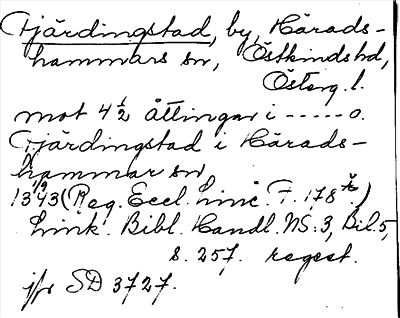 Fjärdingstad, by, Härads-
hammars sn, Östkinds hd,
Österg. l.
mot 4 ½ åttingar i ----- o.
Fjärdingstad i Härads-
hammar sn
13 1/9 43 (Reg. Eccl. Linc. F. 178 )
Link. Bibl. Handl. NS. 3, Bil. 5,
s. 257. regest.
jfr SD 3727.